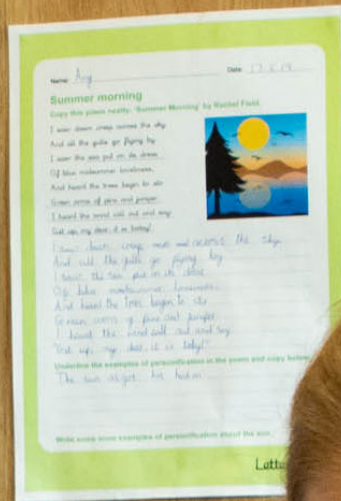 Name: Amy
Date: 17.6.19
Summer morning
Copy this poem neatly: 'Summer Morning' by Rachel Field.
I saw dawn creep across the sky,
And all the gulls go flying by.
I saw the sea put on its dress
Of blue midsummer loveliness,
And heard the trees begin to stir
Green arms of pine and juniper.
I heard the wind call out and say:
'Get up, my dear, it is today!'
I saw dawn creep across the sky
And all the gulls go flying by
I saw the sea put on its dress
Of blue
And heard the trees begin to stir
Green arms of pine and
I heard the wind call out and say
'Get up, my dear, it is today!'
Underline the examples of personification in the poem and copy below.
The sun
Write some more examples of personification about the sun.